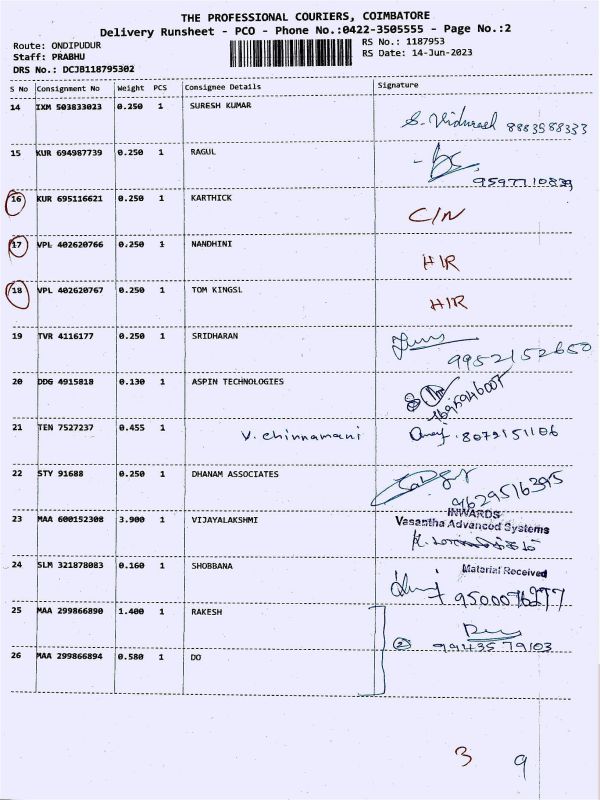 THE PROFESSIONAL COURIERS, COIMBATORE
Delivery Runsheet - PCO - Phone No.:0422-3505555 - Page No.:2
Route: ONDIPUDUR RS No.: 1187953
Staff: PRABHU RS Date: 14-Jun-2023
DRS No.: DCJB118795302
S No Consignment No Weight PCS Consignee Details Signature
14 IXM 503833023 0.250 1 SURESH KUMAR
8883588333
15 KUR 694987739 0.250 1 RAGUL
9597710839
16 KUR 695116621 0.250 1 KARTHICK C/N
17 VPL 402620766 0.250 1 NANDHINI HIR
18 VPL 402620767 0.250 1 TOM KINGSL HIR
19 TVR 4116177 0.250 1 SRIDHARAN
9952152650
20 DDG 4915818 0.130 1 ASPIN TECHNOLOGIES
21 TEN 7527237 0.455 1 V. Chinnamani 8072151106
22 STY 91688 0.250 1 DHANAM ASSOCIATES
9629516395
INWARDS
23 MAA 600152308 3.900 1 VIJAYALAKSHMI Vasantha Advanced Systems
24 SLM 321878083 0.160 1 SHOBBANA Material Received
25 MAA 299866890 1.400 1 RAKESH
2 9443579103
26 MAA 299866894 0.580 1 DO
3 9